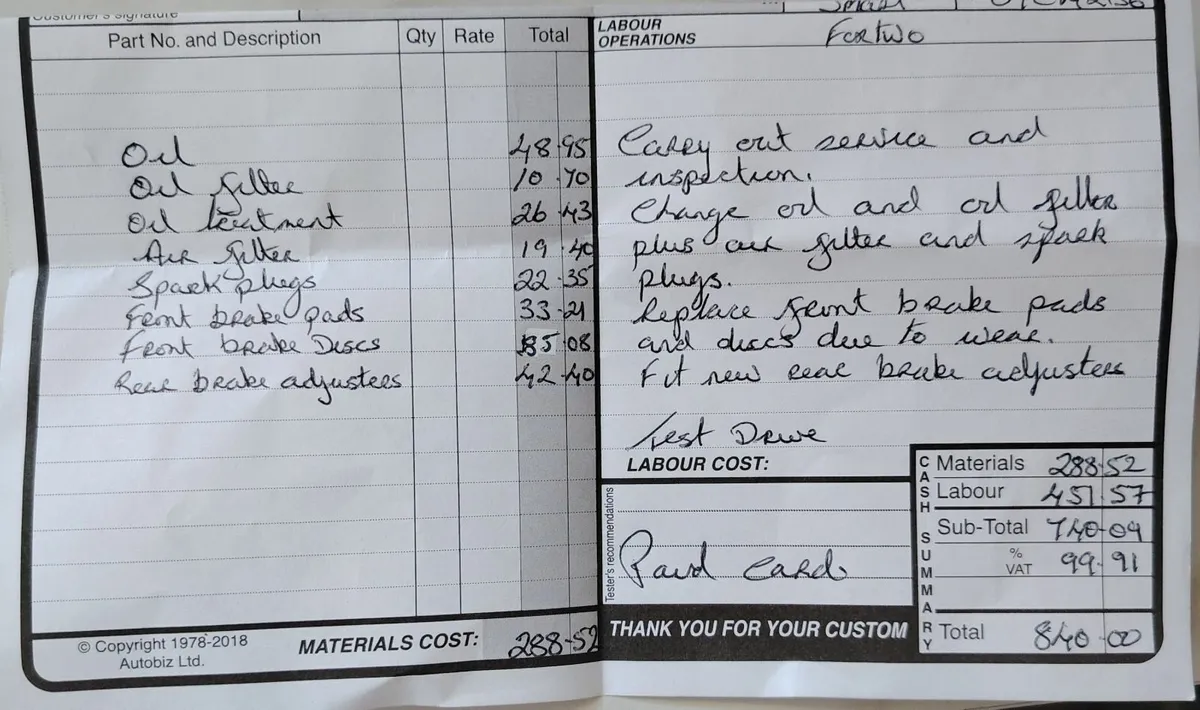 Customer's signature
Part No. and Description Qty Rate Total
Oil 48.95
Oil filter 10.70
Oil treatment 26.43
Air filter 19.40
Spark plugs 22.35
Front brake pads 33.21
Front brake Discs 85.08
Rear brake adjusters 42.40
© Copyright 1978-2018
Autobiz Ltd.
MATERIALS COST: 288-52
LABOUR
OPERATIONS
Fortwo
Carry out service and
inspection.
Change oil and oil filter
plus air filter and spark
plugs.
Replace front brake pads
and discs due to wear.
Fit new rear brake adjusters
Test Drive
LABOUR COST:
Tester's recommendations
Paid Card
THANK YOU FOR YOUR CUSTOM
CASH SUMMARY
Materials 288.52
Labour 451.57
Sub-Total 740-09
% VAT 99.91
Total 840.00